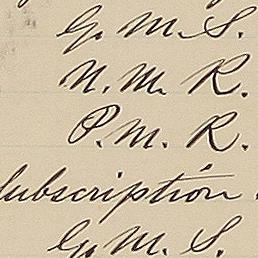 G. M. S.
N. M. R.
P. M. R.
Subscription.
G. M. S.